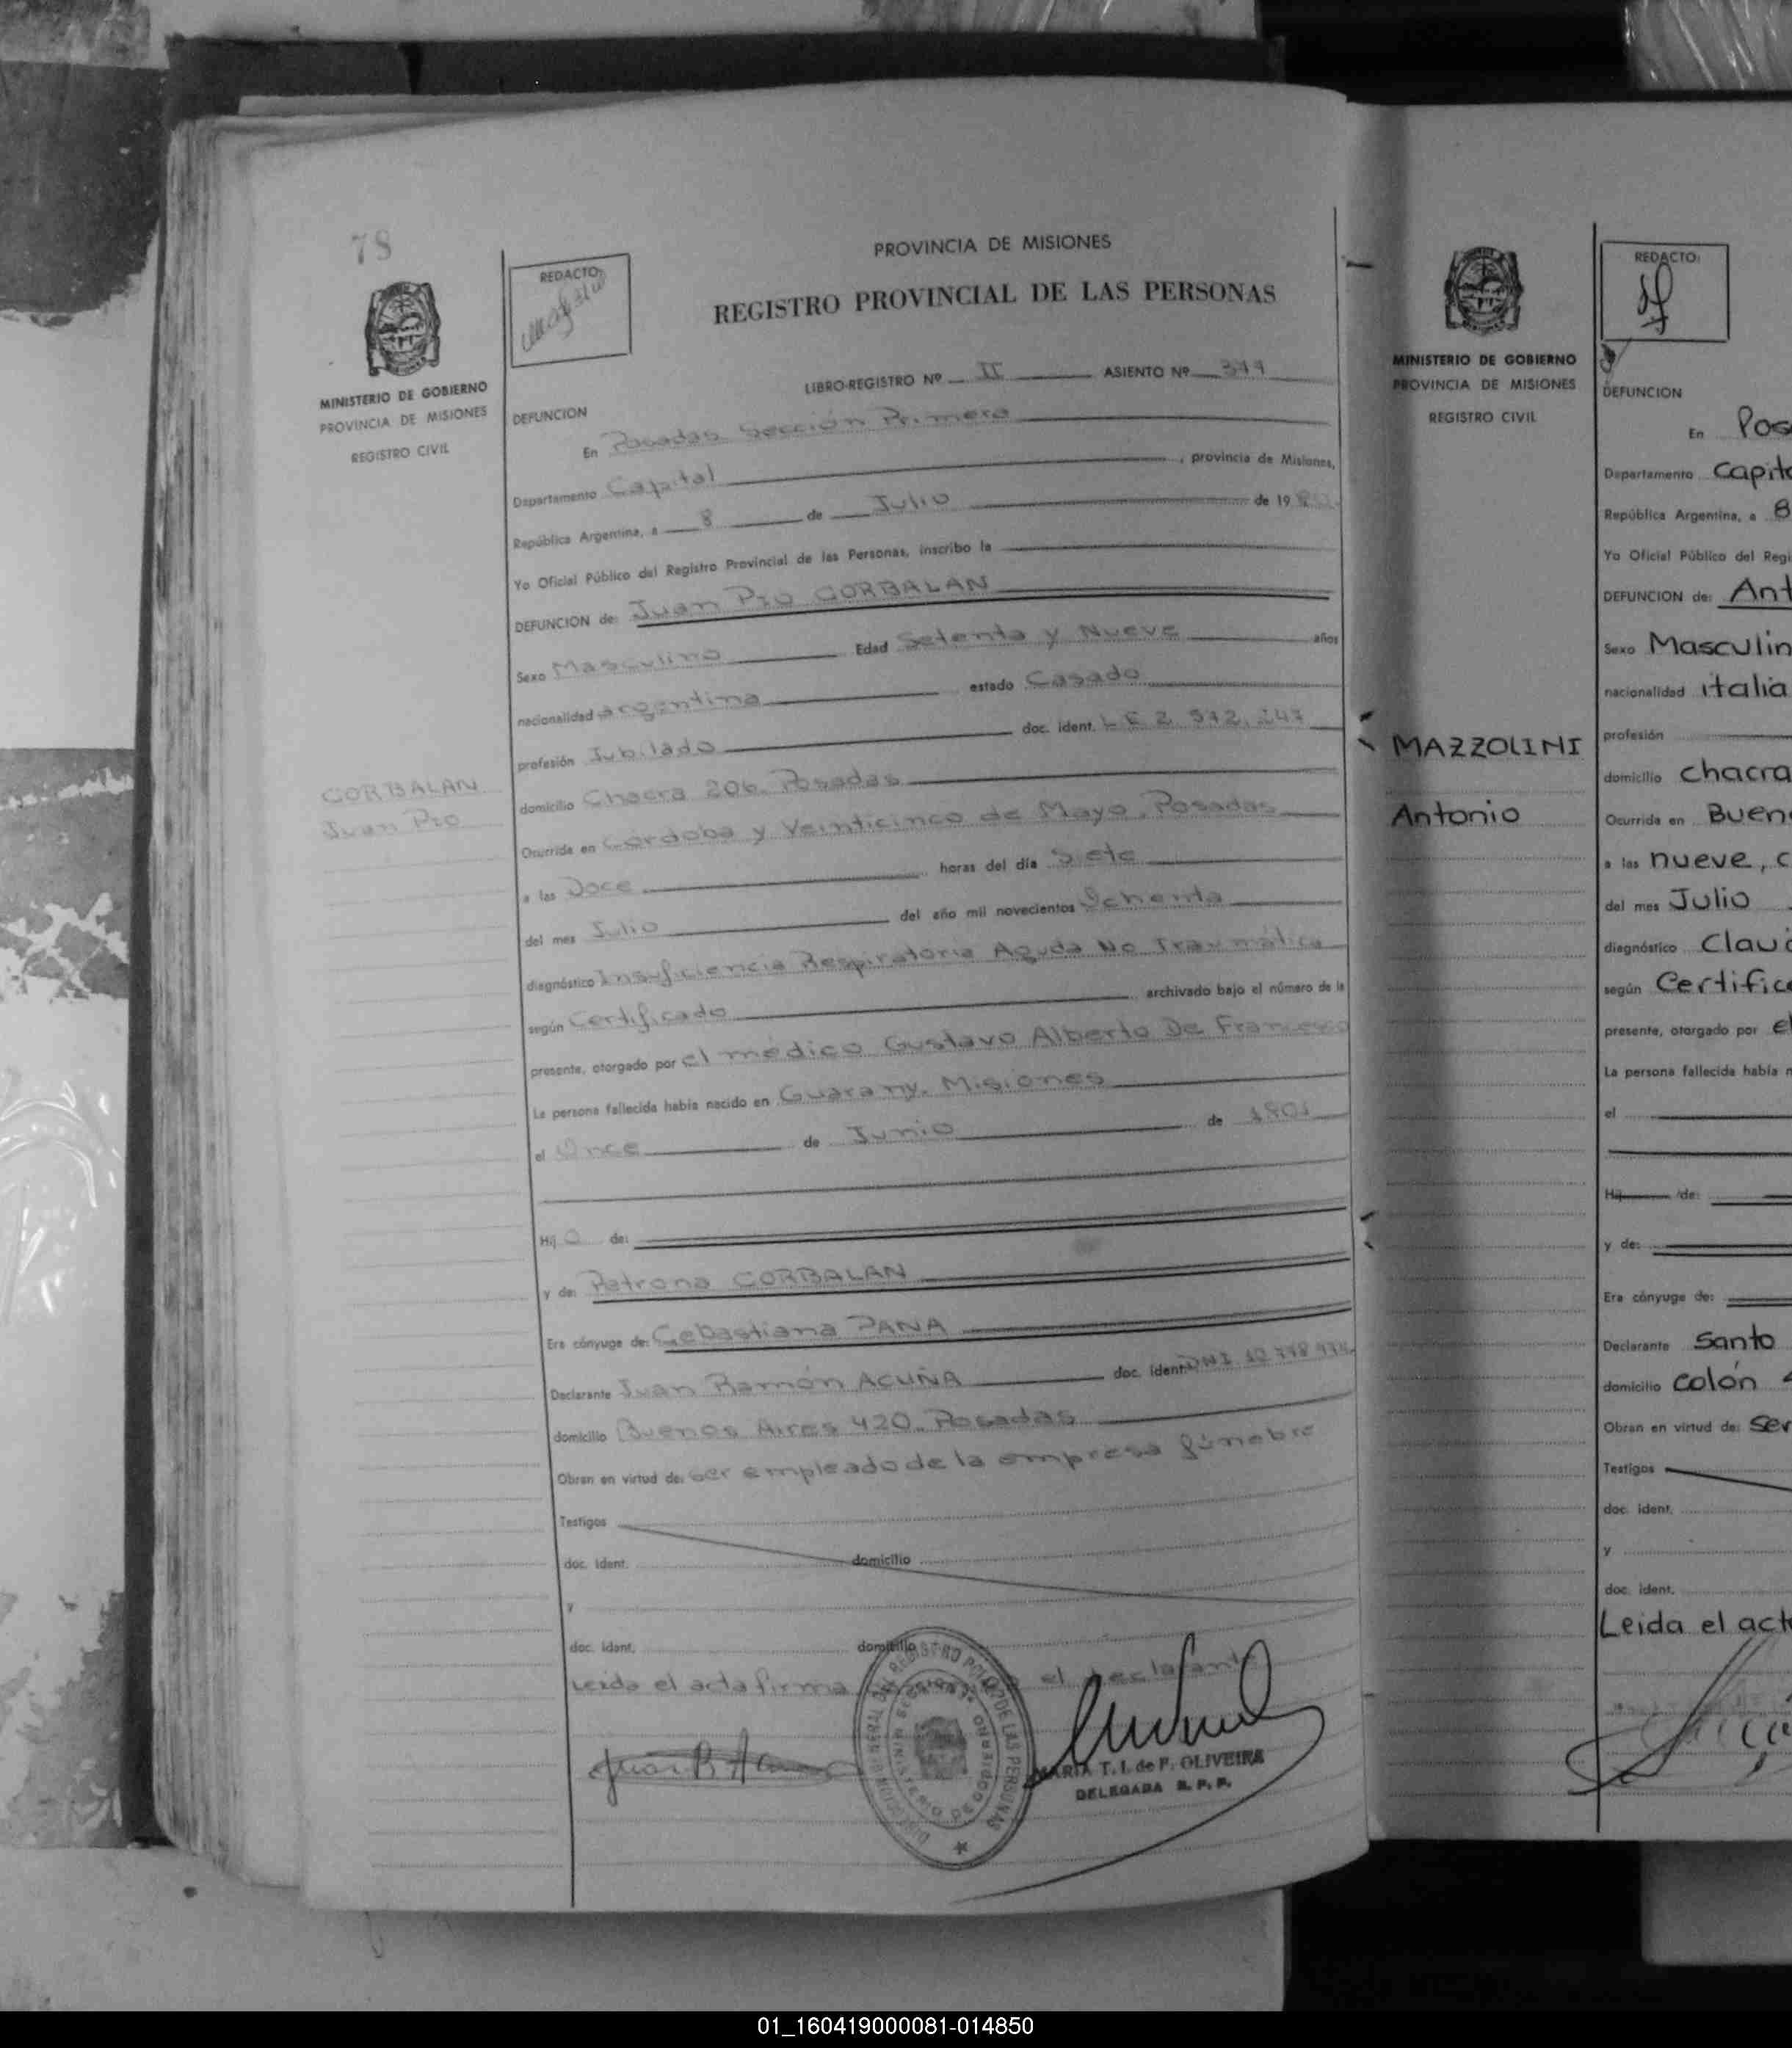 78
PROVINCIA DE MISIONES
REDACTO:
REGISTRO PROVINCIAL DE LAS PERSONAS
MINISTERIO DE GOBIERNO
PROVINCIA DE MISIONES
REGISTRO CIVIL
LIBRO-REGISTRO Nº II ASIENTO Nº
DEFUNCION
En Posadas Sección Primera
Departamento Capital, provincia de Misiones,
República Argentina, a 8 de Julio de 1980
Yo Oficial Público del Registro Provincial de las Personas, inscribo la
DEFUNCION de: Juan Pío CORBALAN
Sexo Masculino Edad Setenta y Nueve años
nacionalidad argentina estado Casado
profesión Jubilado doc. ident. L E 2.572.147
CORBALAN
Juan Pío
domicilio Chacra 206. Posadas
Ocurrida en Córdoba y Veinticinco de Mayo, Posadas
a las Doce horas del día Siete
del mes Julio del año mil novecientos Ochenta
diagnóstico Insuficiencia Respiratoria Aguda No Traumática
según Certificado archivado bajo el número de la
presente, otorgado por el médico Gustavo Alberto De Francesco
La persona fallecida había nacido en Guarany. Misiones
el Once de Junio de 1901
Hijo de:
y de: Petrona CORBALAN
Era cónyuge de: Sebastiana PANA
Declarante Juan Ramón ACUÑA doc. ident. DNI
domicilio Buenos Aires 420. Posadas
Obran en virtud de: ser empleado de la empresa fúnebre
Testigos
doc. ident. domicilio
y
doc. ident. domicilio
Leída el acta firma el declarante
DIRECCION GENERAL DEL REGISTRO PCIAL DE LAS PERSONAS
MINISTERIO DE GOBIERNO
MARIA T. I. de F. OLIVEIRA
DELEGADA R. P. P.
REDACTO:
MINISTERIO DE GOBIERNO
PROVINCIA DE MISIONES
REGISTRO CIVIL
DEFUNCION
En Pos
Departamento Capita
República Argentina, a 8
Yo Oficial Público del Regi
DEFUNCION de: Ant
Sexo Masculin
nacionalidad italia
profesión
MAZZOLINI
Antonio
domicilio chacra
Ocurrida en Buen
a las nueve, c
del mes Julio
diagnóstico Claud
según Certifica
presente, otorgado por el
La persona fallecida había n
el
Hij de:
y de:
Era cónyuge de:
Declarante Santo
domicilio colón 4
Obran en virtud de: ser
Testigos
doc. ident.
y
doc. ident.
Leida el acta
01_160419000081-014850